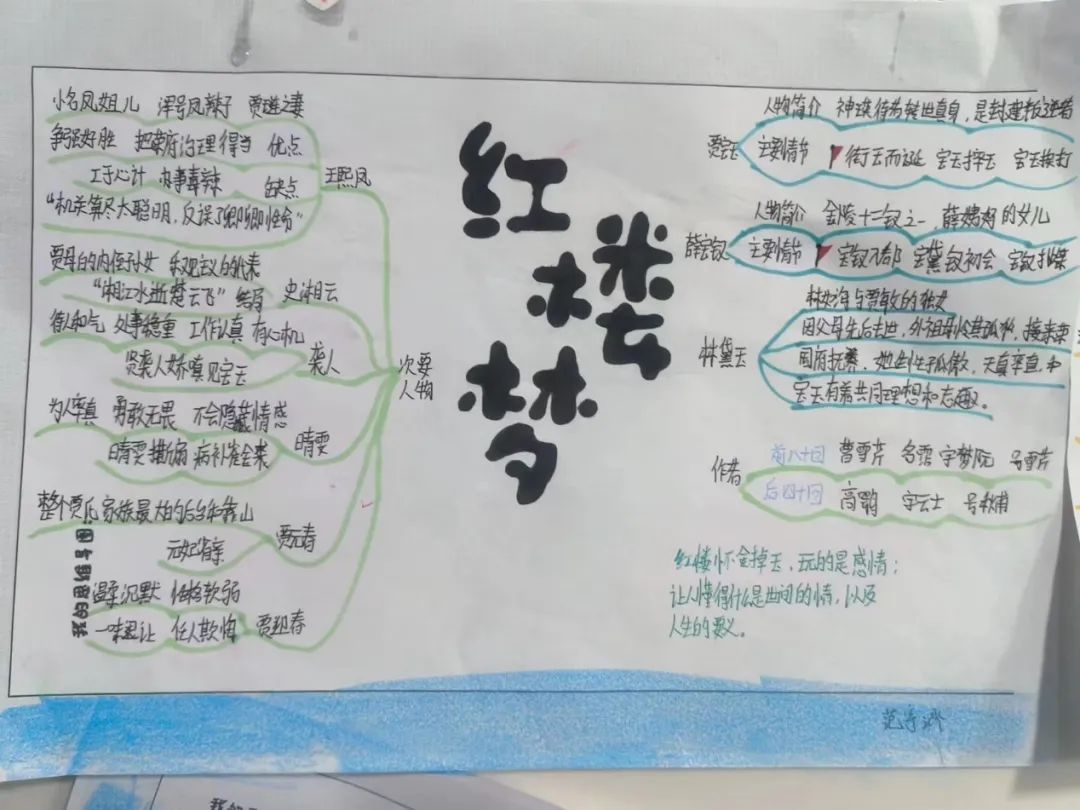 红
楼
梦
小名凤姐儿 浑号凤辣子 贾琏之妻
争强好胜 把荣府治理得当 优点
工于心计 办事毒辣 缺点
王熙凤
“机关算尽太聪明,反误了卿卿性命”
贾母的内侄孙女
“湘江水逝楚云飞” 结局 史湘云
待人和气 处事稳重 工作认真 有心机
贤袭人娇嗔见宝玉 袭人
次要
人物
为人率真 勇敢无畏 不会隐藏情感
晴雯撕扇 病补雀金裘 晴雯
整个贾氏家族最大的后台和靠山
元妃省亲 贾元春
温柔沉默 性格软弱
一味忍让 任人欺侮 贾迎春
我的思维导图
人物简介 神瑛侍者转世真身,是封建叛逆者
贾宝玉 主要情节 衔玉而诞 宝玉摔玉 宝玉挨打
人物简介 金陵十二钗之一,薛姨妈的女儿
薛宝钗 主要情节 宝钗入都 宝黛钗初会 宝钗扑蝶
林如海与贾敏的独女
因父母先后去世,外祖母怜其孤独,接来荣
林黛玉
国府抚养。她生性孤傲,天真率直,和
宝玉有着共同理想和志趣。
作者
前八十回 曹雪芹 名霑 字梦阮 号雪芹
后四十回 高鹗 字云士 号秋甫
红楼怀金掉玉,玩的是感情;
让人懂得什么是世间的情,以及
人生的要义。
我的